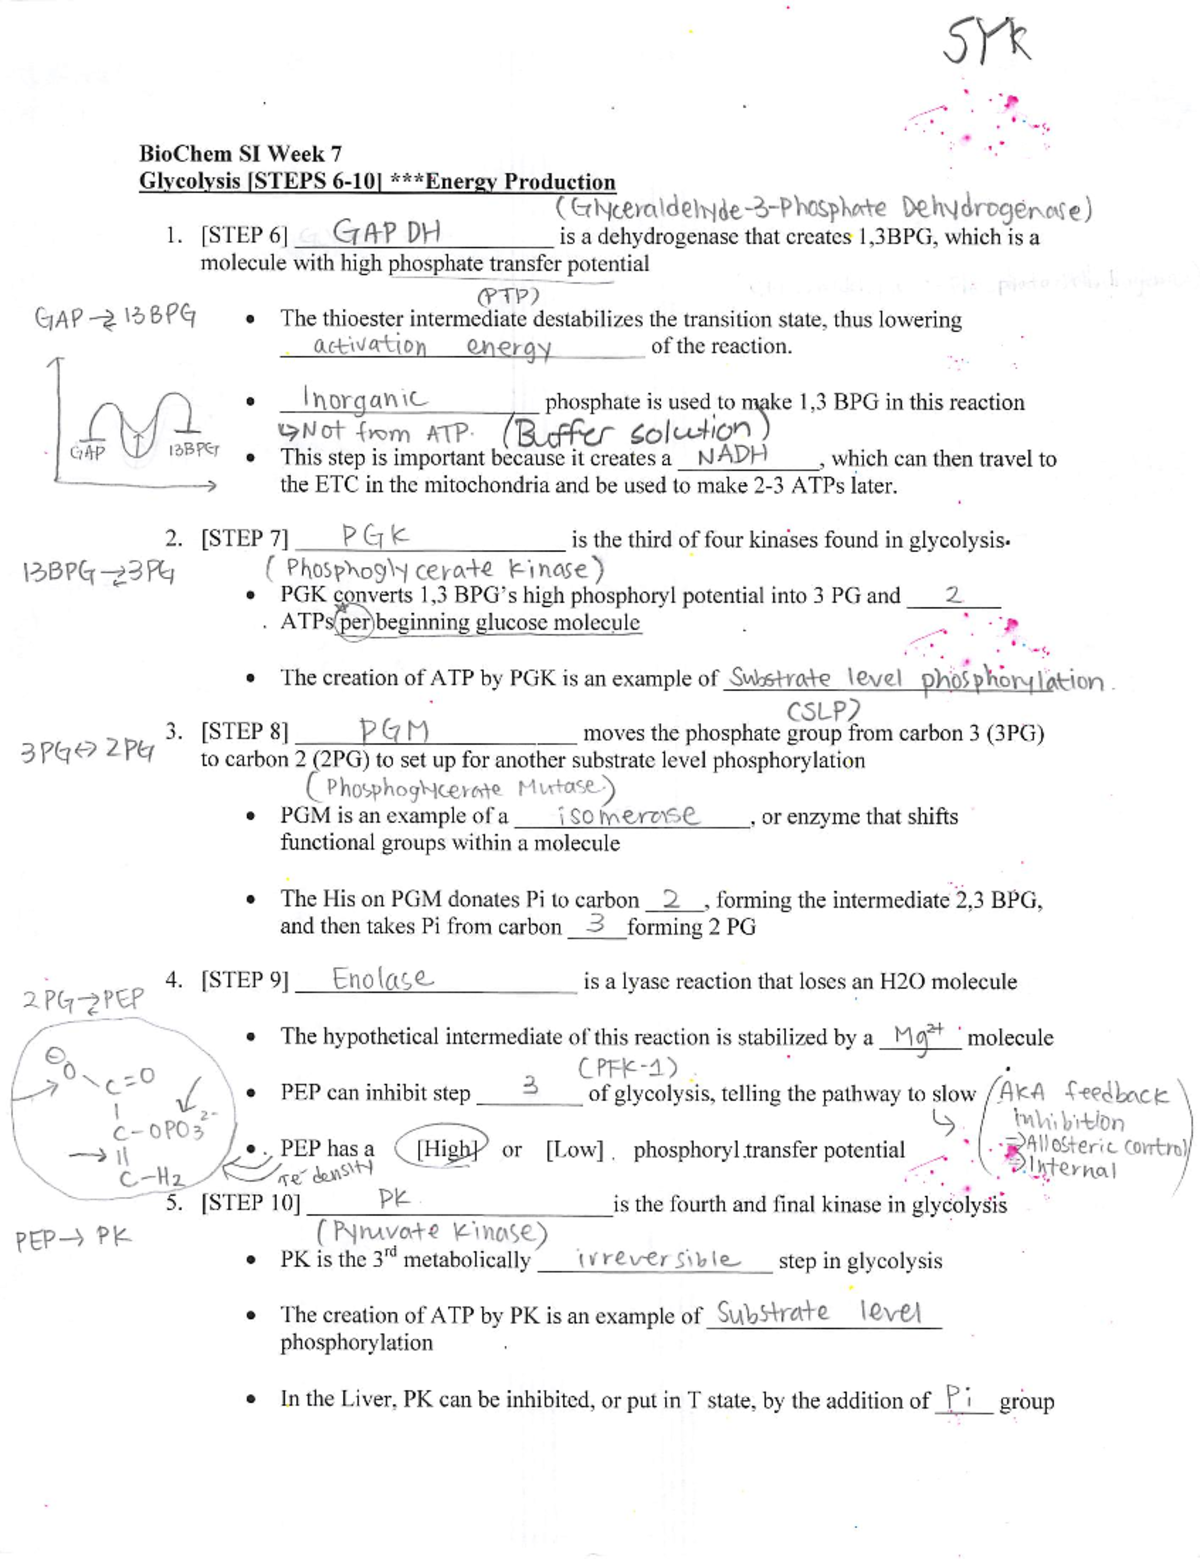 SYK
BioChem SI Week 7
Glycolysis [STEPS 6-10] ***Energy Production
(Glyceraldehyde-3-Phosphate Dehydrogenase)
1. [STEP 6] GAPDH is a dehydrogenase that creates 1,3BPG, which is a
molecule with high phosphate transfer potential
(PTP)
GAP ⇄ 13BPG
• The thioester intermediate destabilizes the transition state, thus lowering
activation energy of the reaction.
GAP 13BPG
• Inorganic phosphate is used to make 1,3 BPG in this reaction
↳ Not from ATP. (Buffer solution)
• This step is important because it creates a NADH, which can then travel to
the ETC in the mitochondria and be used to make 2-3 ATPs later.
2. [STEP 7] PGK is the third of four kinases found in glycolysis.
13BPG ⇄ 3PG
(Phosphoglycerate Kinase)
• PGK converts 1,3 BPG's high phosphoryl potential into 3 PG and 2
ATPs per beginning glucose molecule
• The creation of ATP by PGK is an example of Substrate level phosphorylation.
(SLP)
3. [STEP 8] PGM moves the phosphate group from carbon 3 (3PG)
3PG ↔ 2PG
to carbon 2 (2PG) to set up for another substrate level phosphorylation
(Phosphoglycerate Mutase)
• PGM is an example of a isomerase, or enzyme that shifts
functional groups within a molecule
• The His on PGM donates Pi to carbon 2, forming the intermediate 2,3 BPG,
and then takes Pi from carbon 3 forming 2 PG
4. [STEP 9] Enolase is a lyase reaction that loses an H2O molecule
2PG ⇄ PEP
• The hypothetical intermediate of this reaction is stabilized by a Mg²⁺ molecule
(PFK-1)
• PEP can inhibit step 3 of glycolysis, telling the pathway to slow
(AKA feedback
inhibition
⇒ Allosteric control
⇒ Internal)
⊖O C=O
C-OPO3²⁻
C-H2
• PEP has a [High] or [Low] phosphoryl transfer potential
↑e⁻ density
5. [STEP 10] PK is the fourth and final kinase in glycolysis
PEP → PK
(Pyruvate Kinase)
• PK is the 3rd metabolically irreversible step in glycolysis
• The creation of ATP by PK is an example of Substrate level
phosphorylation
• In the Liver, PK can be inhibited, or put in T state, by the addition of Pi group